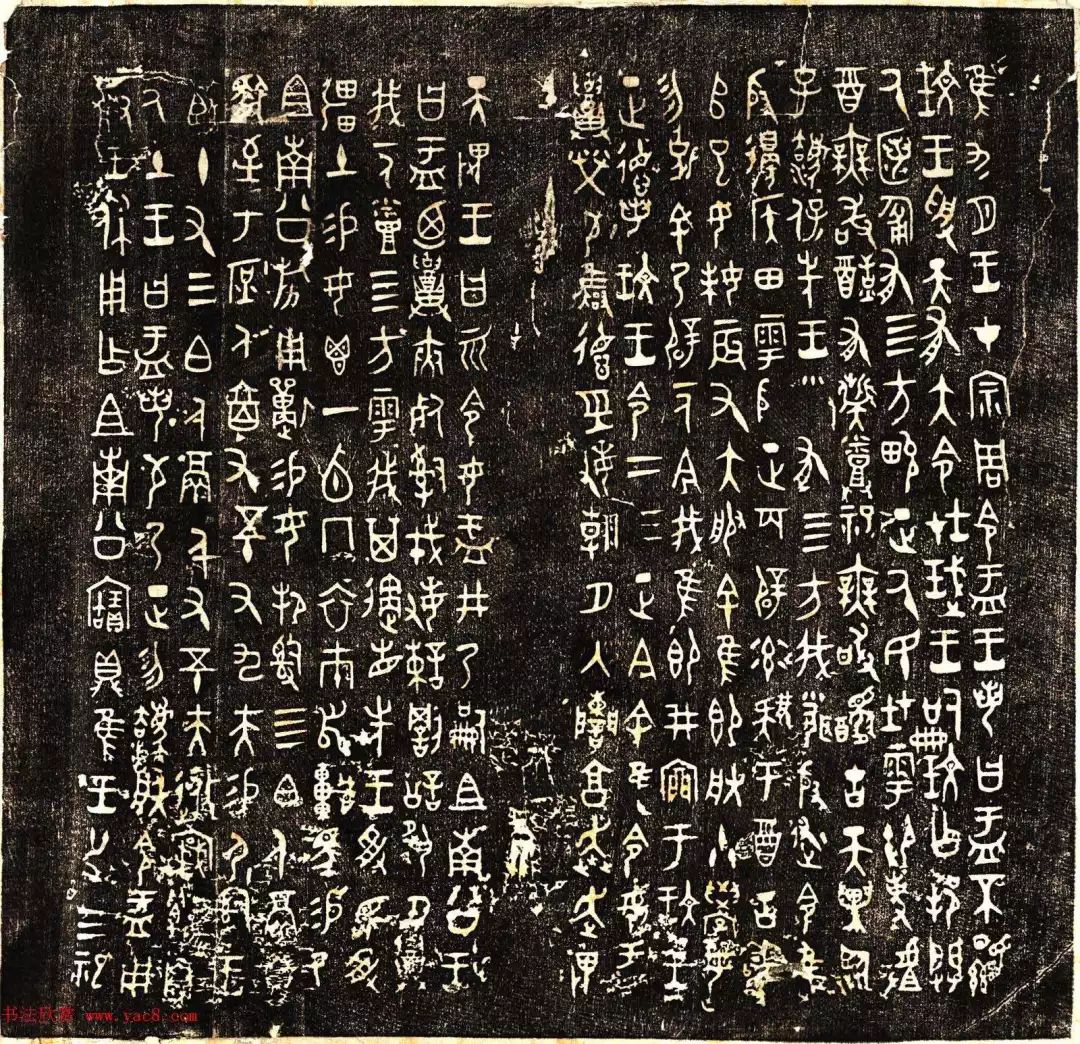 隹九月王才宗周令盂王若曰盂不顯
玟王受天有大令在珷王嗣玟乍邦闢
厥匿匍有四方畯正厥民在雩御事𠭯
酉無敢酖有祡烝祀無敢擾古天異臨
子法保先王有四方我聞殷述令隹
殷邊侯田雩殷正百辟率肄于酉古喪
𠂤巳女妹辰又大服余隹即朕小學女
勿克余乃辟一人今我隹即井㐭于玟王
正德若玟王令二三正今余隹令女盂
召榮敬雍德巠敏朝夕入讕享奔走畏
天畏王曰令女盂井乃嗣且南公王
曰盂迺召夾死司戎敏諫罰訟夙夕召
我一人烝四方雩我其遹省先王受民受
疆土易女鬯一卣冂衣巿舄車馬易乃
且南公旂用狩易女邦司四白人鬲自
馭至于庶人六百又五十又九夫易尸司王
臣十又三白人鬲千又五十夫
厥土王曰盂若敬乃正勿廢朕令盂用
對王休用乍且南公寶鼎隹王廿又三祀
书法欣赏 www.yac8.com